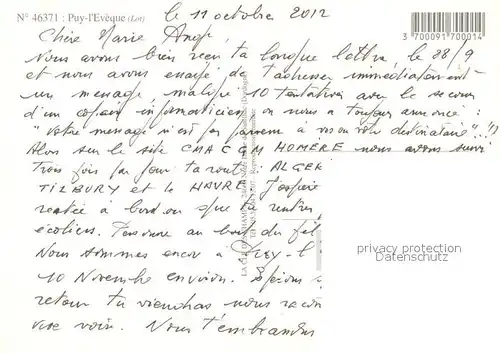 N° 46371 : Puy-l'Evêque (Lot)
le 11 octobre 2012
3 700091 700014
Chère Marie Ange,
Nous avons bien reçu ta longue lettre, le 28/9
et nous avons essayé de t'adresser immédiatement
un message, malgré 10 tentatives avec le secours
d'un copain informaticien on nous a toujours annoncé :
"votre message n'est pas parvenu à son destinataire" !!)
Alors sur le site CMA CGM HOMÈRE nous avons suivi
Trois fois par jour ta route : ALGER
TILBURY et le HAVRE J'espère
rentrée à bord ou que tu rentres
écoliers. Personne au bout du fil
Nous sommes encore à
10 Novembre environ. Espérons
retour tu viendras nous
vive voix. Nous t'embrassons
privacy protection
ansichtskarten-center.de